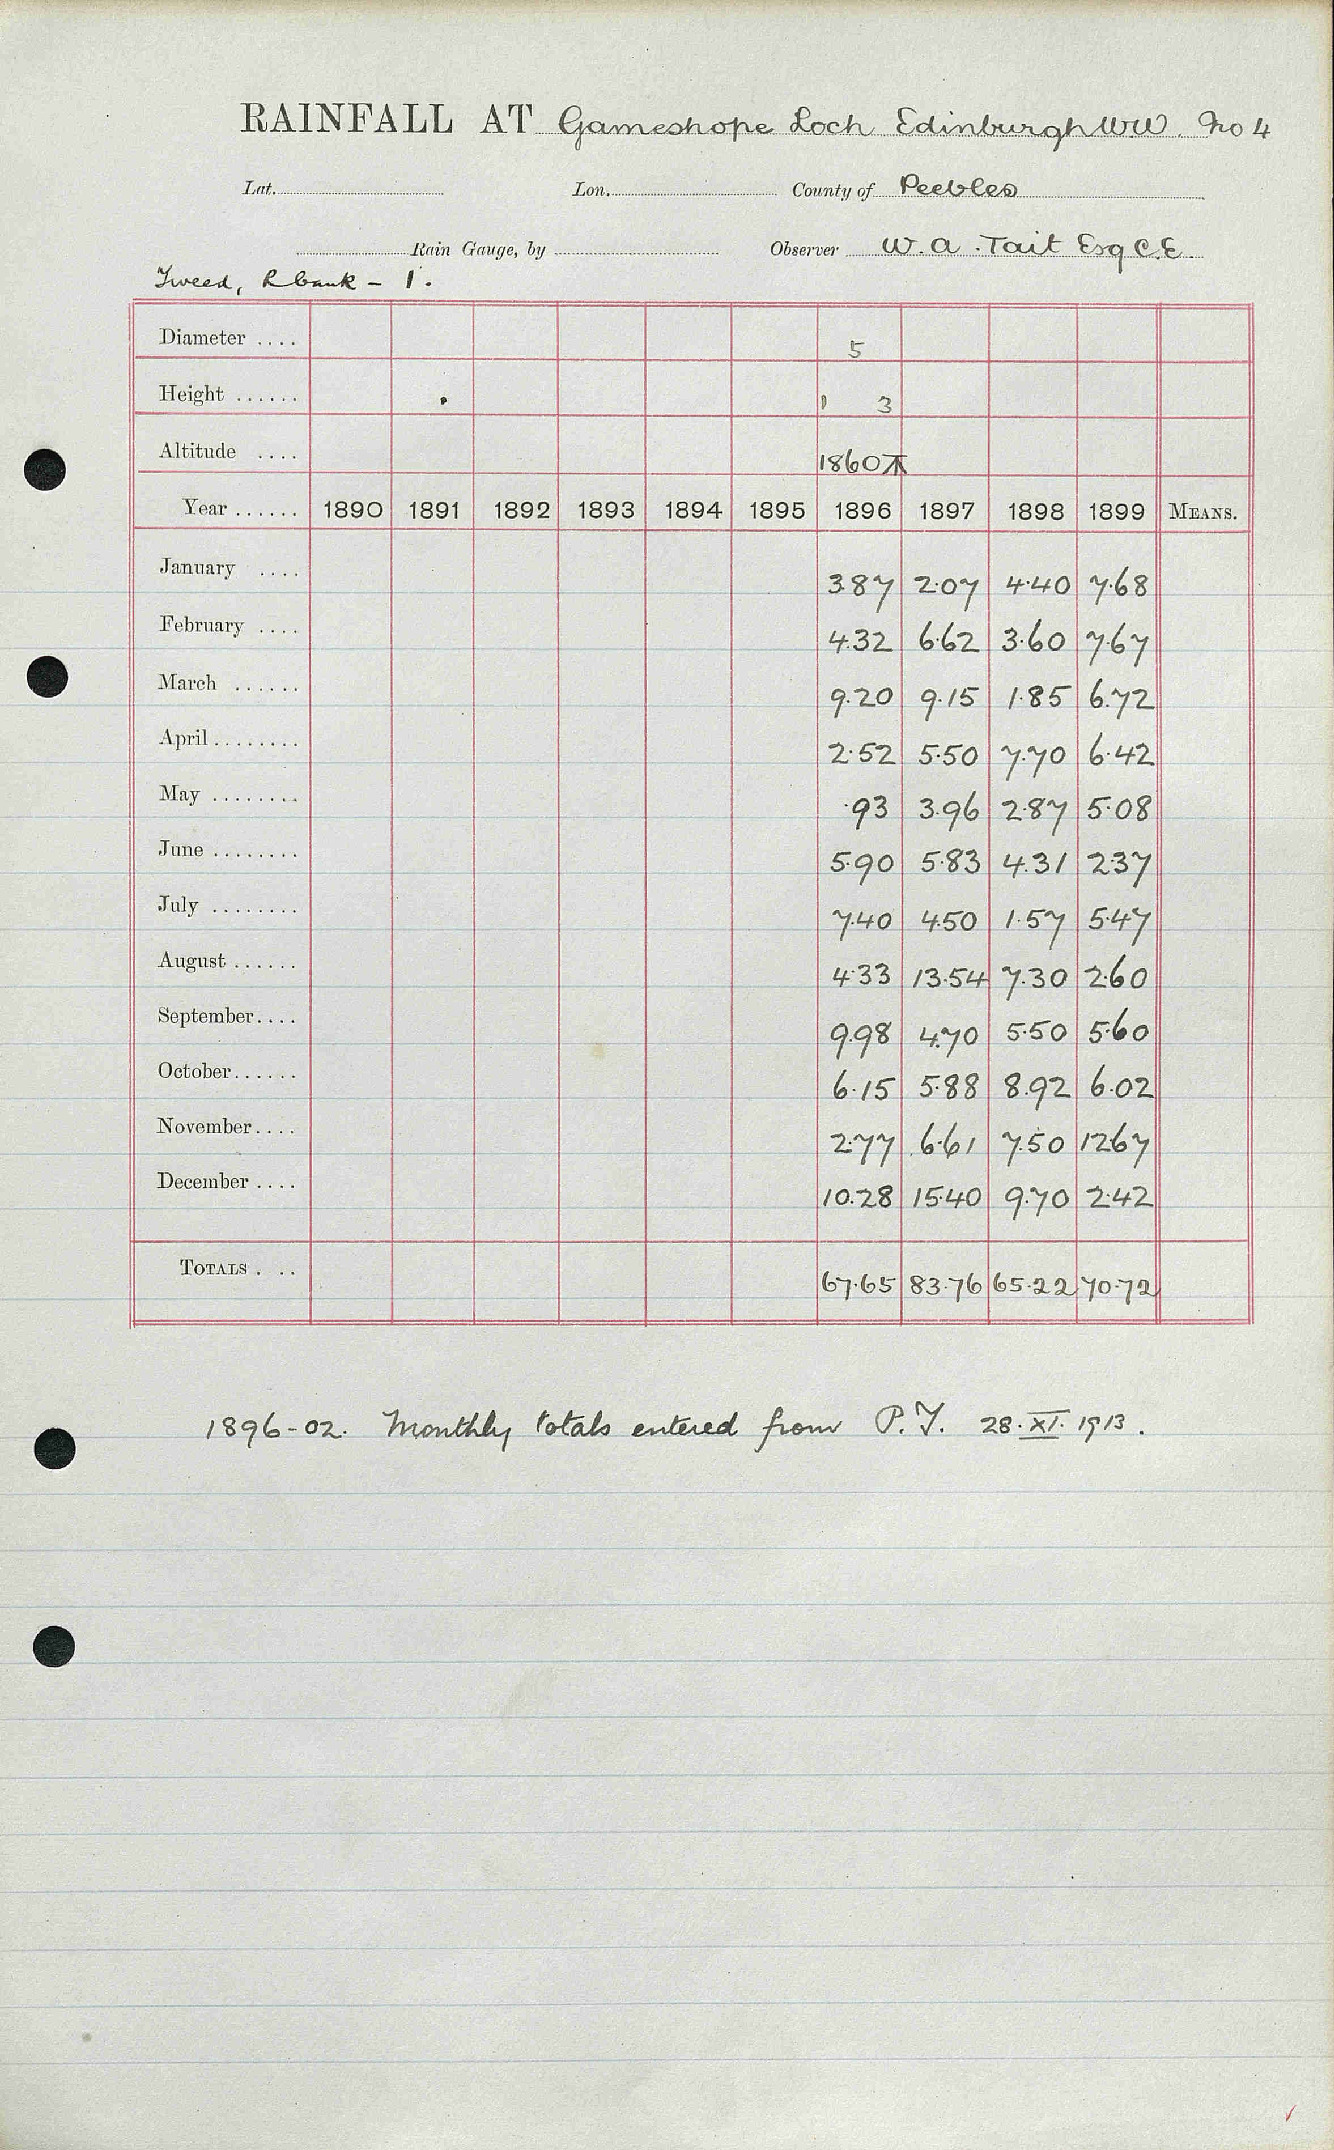 RAINFALL AT Gameshope Loch Edinburgh WW. No 4
Lat. Lon. County of Peebles
Rain Gauge, by Observer W. A. Tait Esq C.E.
Tweed, R bank - 1.
Diameter .... 5
Height ...... 1 3
Altitude .... 1860
Year ...... 1890 1891 1892 1893 1894 1895 1896 1897 1898 1899 MEANS.
January .... 3.87 2.07 4.40 7.68
February .... 4.32 6.62 3.60 7.67
March ...... 9.20 9.15 1.85 6.72
April ........ 2.52 5.50 7.70 6.42
May ........ .93 3.96 2.87 5.08
June ........ 5.90 5.83 4.31 2.37
July ........ 7.40 4.50 1.57 5.47
August ...... 4.33 13.54 7.30 2.60
September.... 9.98 4.70 5.50 5.60
October...... 6.15 5.88 8.92 6.02
November.... 2.77 6.61 7.50 12.67
December .... 10.28 15.40 9.70 2.42
TOTALS . .. 67.65 83.76 65.22 70.72
1896-02. Monthly totals entered from P.T. 28.XI.1913.